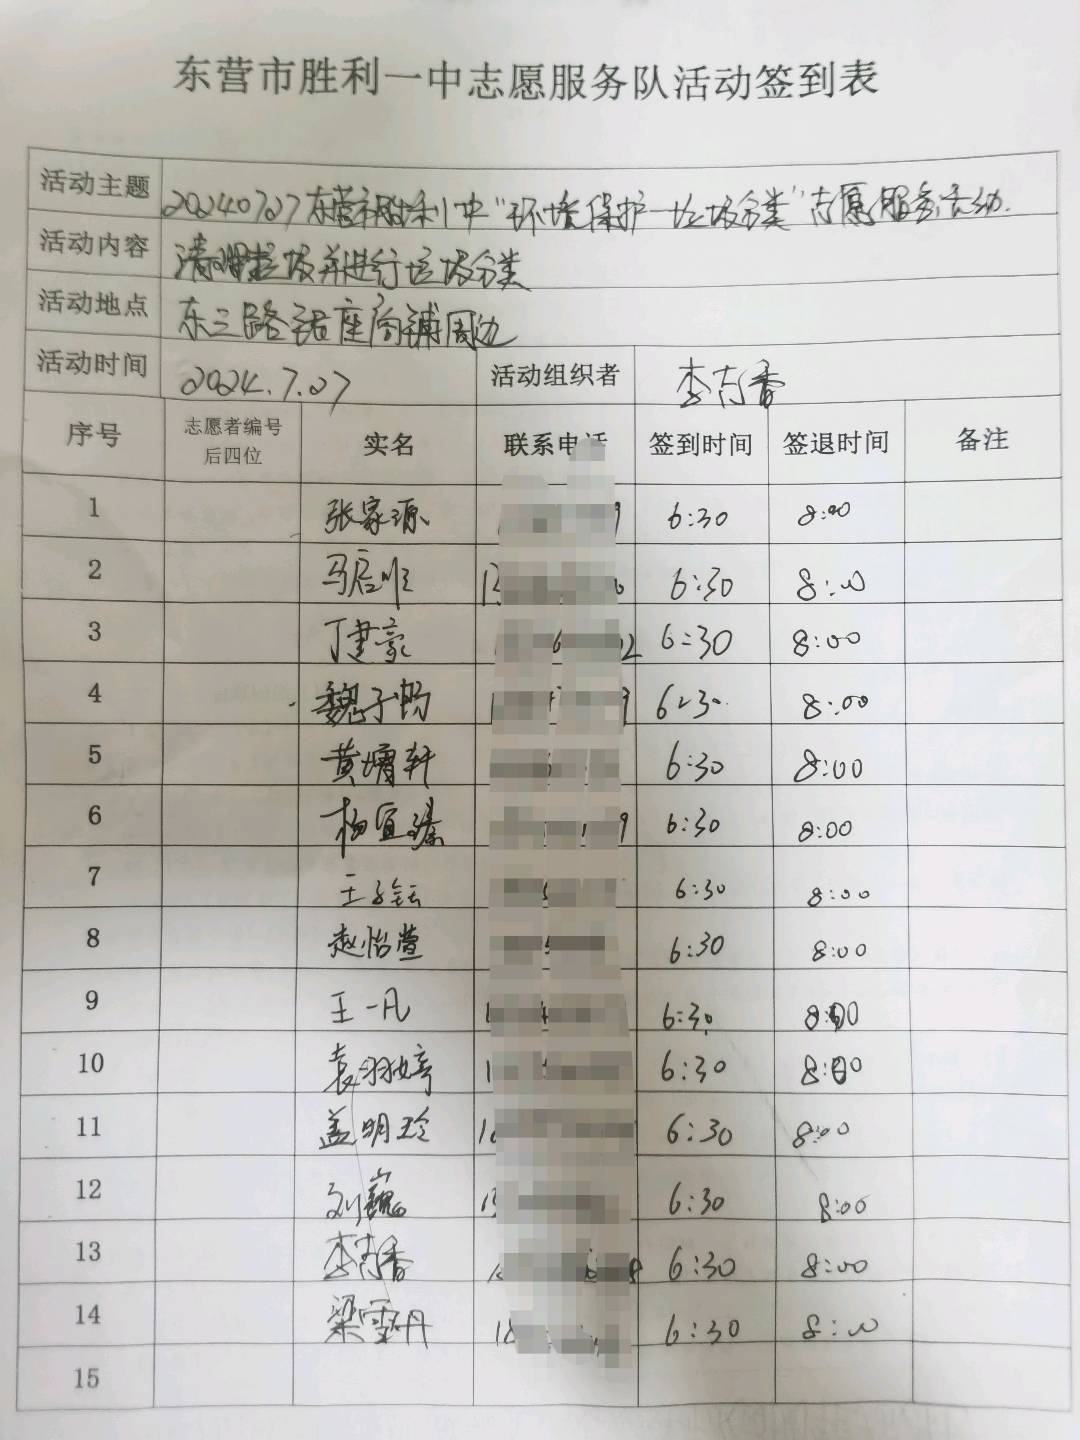 东营市胜利一中志愿服务队活动签到表
活动主题 20240727东营市胜利一中“环境保护—垃圾分类”志愿服务活动.
活动内容 清理垃圾并进行垃圾分类
活动地点 东三路 座商铺周边
活动时间 2024.7.27 活动组织者 李 香
序号 志愿者编号后四位 实名 联系电话 签到时间 签退时间 备注
1 张家源 9 6:30 8:00
2 马启顺 13 0 6:30 8:00
3 丁建豪 6 02 6:30 8:00
4 魏子 6:30 8:00
5 黄 轩 6:30 8:00
6 杨宜臻 9 6:30 8:00
7 王子钰 6:30 8:00
8 赵怡萱 6:30 8:00
9 王一凡 6:30 8:00
10 袁羽婷 6:30 8:00
11 盖明玲 6:30 8:00
12 刘巍 6:30 8:00
13 李 香 6:30 8:00
14 梁雪丹 6:30 8:00
15